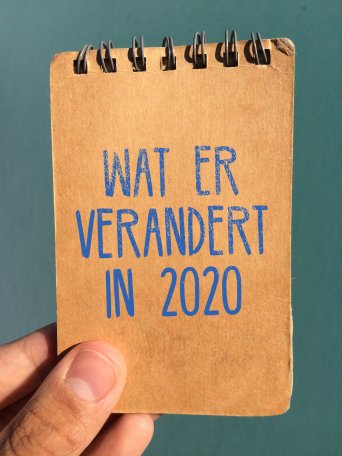 WAT ER
VERANDERT
IN 2020